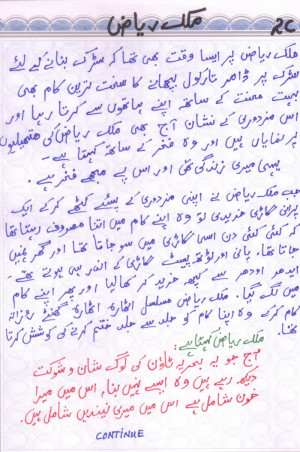 ملک ریاض
2C
ملک ریاض پر ایسا وقت بھی تھا کہ سڑک بنانے کے لیئے
سڑک پر ڈامر تارکول بچھانے کا سخت ترین کام بھی
بہت محنت کے ساتھ اپنے ہاتھوں سے کرتا رہا اور
اس مزدوری کے نشان آج بھی ملک ریاض کی ہتھیلیوں
پر نمایاں ہیں اور وہ فخر کے ساتھ کہتا ہے۔
یہی میری زندگی تھی اور اس پے مجھے فخر ہے۔
جب ملک ریاض نے اپنی مزدوری کے پیسے اکٹھے کر کے ایک
پرانی گاڑی خریدی تو وہ اپنے کام میں اتنا مصروف رہتا تھا
کہ کئی کئی دن اسی گاڑی میں سو جاتا تھا اور گھر نہیں
جاتا تھا۔ پانی اور ٹوتھ پیسٹ گاڑی کے اندر ہی ہوتے تھے۔
ادھر اودھر سے کچھ خرید کر کھا لیا اور پھر اپنے کام
میں لگ گیا۔ ملک ریاض مسلسل اٹھارہ اٹھارہ گھنٹے روزانہ
کام کر کے وہ اپنا کام کو جلد سے جلد ختم کرنے کی کوشش کرتا
تھا۔
ملک ریاض کہتا ہے:
آج جو یہ بحریہ ٹاؤن کی لوگ شان و شوکت
دیکھ رہے ہیں وہ ایسے نہیں بنا، اس میں میرا
خون شامل ہے اس میں میری نیندیں شامل ہیں۔
CONTINUE